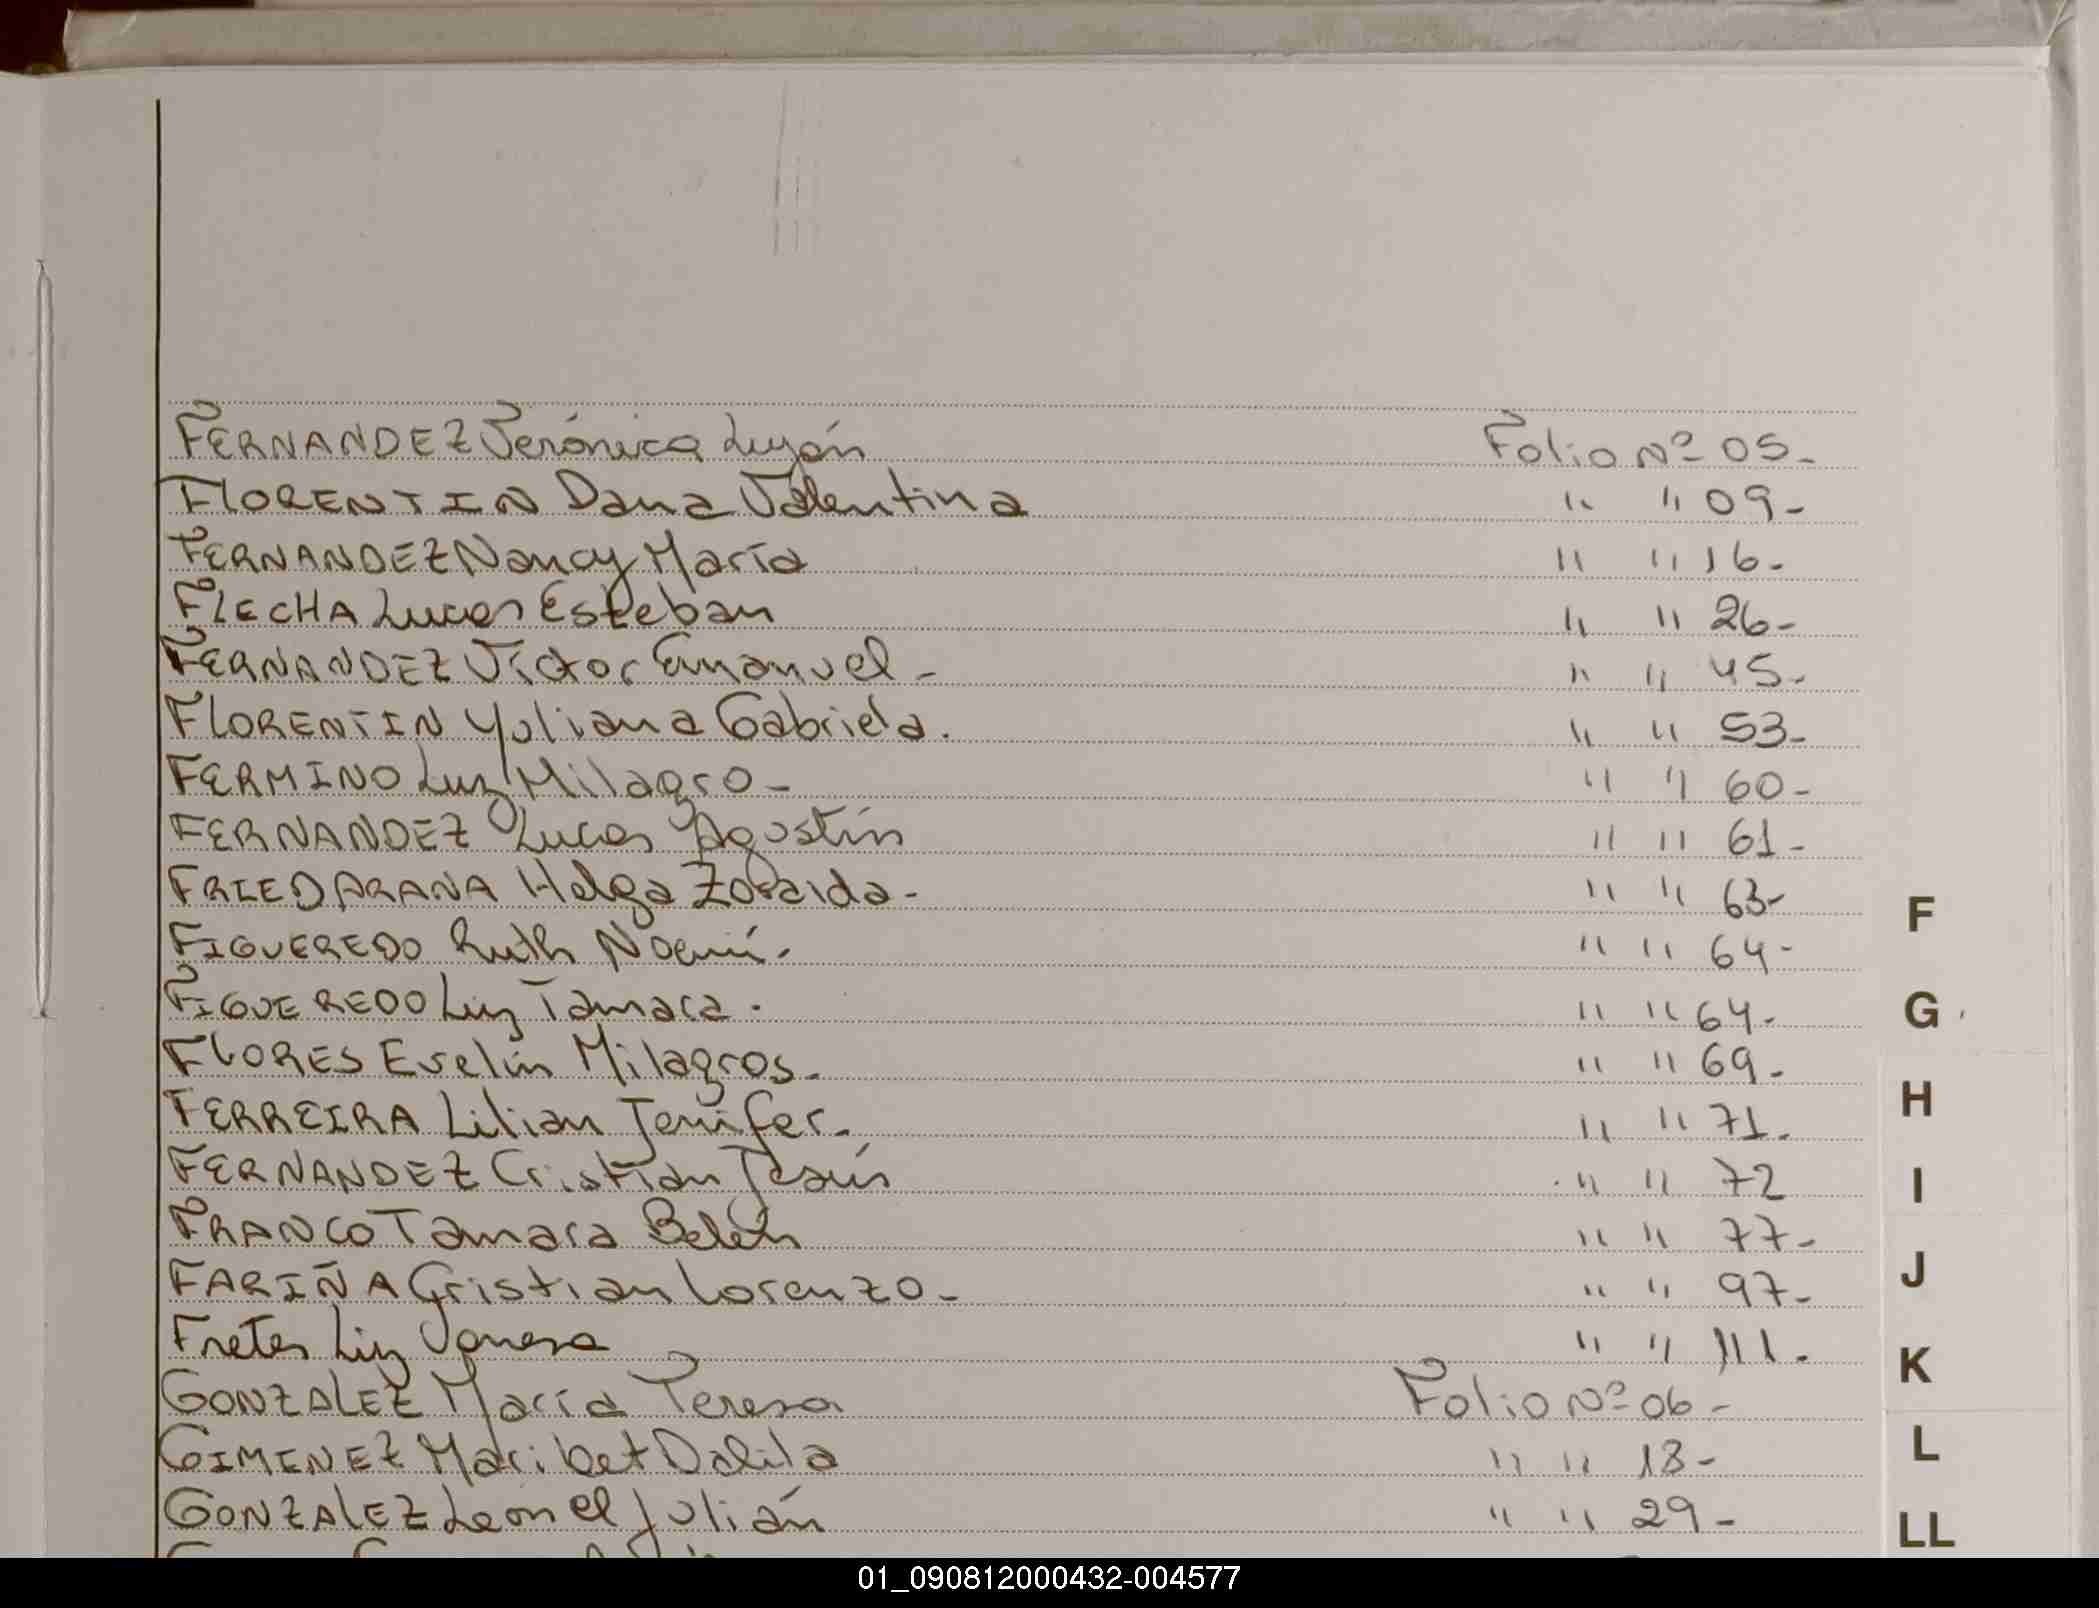 FERNANDEZ Verónica Luján Folio Nº 05-
FLORENTIN Dana Valentina " " 09-
FERNANDEZ Nancy María " " 16-
FLECHA Lucas Esteban " " 26-
FERNANDEZ Víctor Emanuel- " " 45-
FLORENTIN Yuliana Gabriela. " " 53-
FERMINO Luz Milagro- " " 60-
FERNANDEZ Lucas Agustín " " 61-
FRIEDARANA Helga Zoraida- " " 63-
FIGUEREDO Ruth Noemí. " " 64-
FIGUEREDO Liz Tamara. " " 64-
FLORES Evelin Milagros. " " 69-
FERREIRA Lilian Jenifer. " " 71-
FERNANDEZ Cristian Jesús " " 72
FRANCO Tamara Belén " " 77-
FARIÑA Cristian Lorenzo- " " 97-
Fretes Liz Vanesa " " 111.
GONZALEZ María Teresa Folio Nº 06-
GIMENEZ Maribet Dalila " " 13-
GONZALEZ Leonel Julián " " 29-
F
G
H
I
J
K
L
LL
01_090812000432-004577